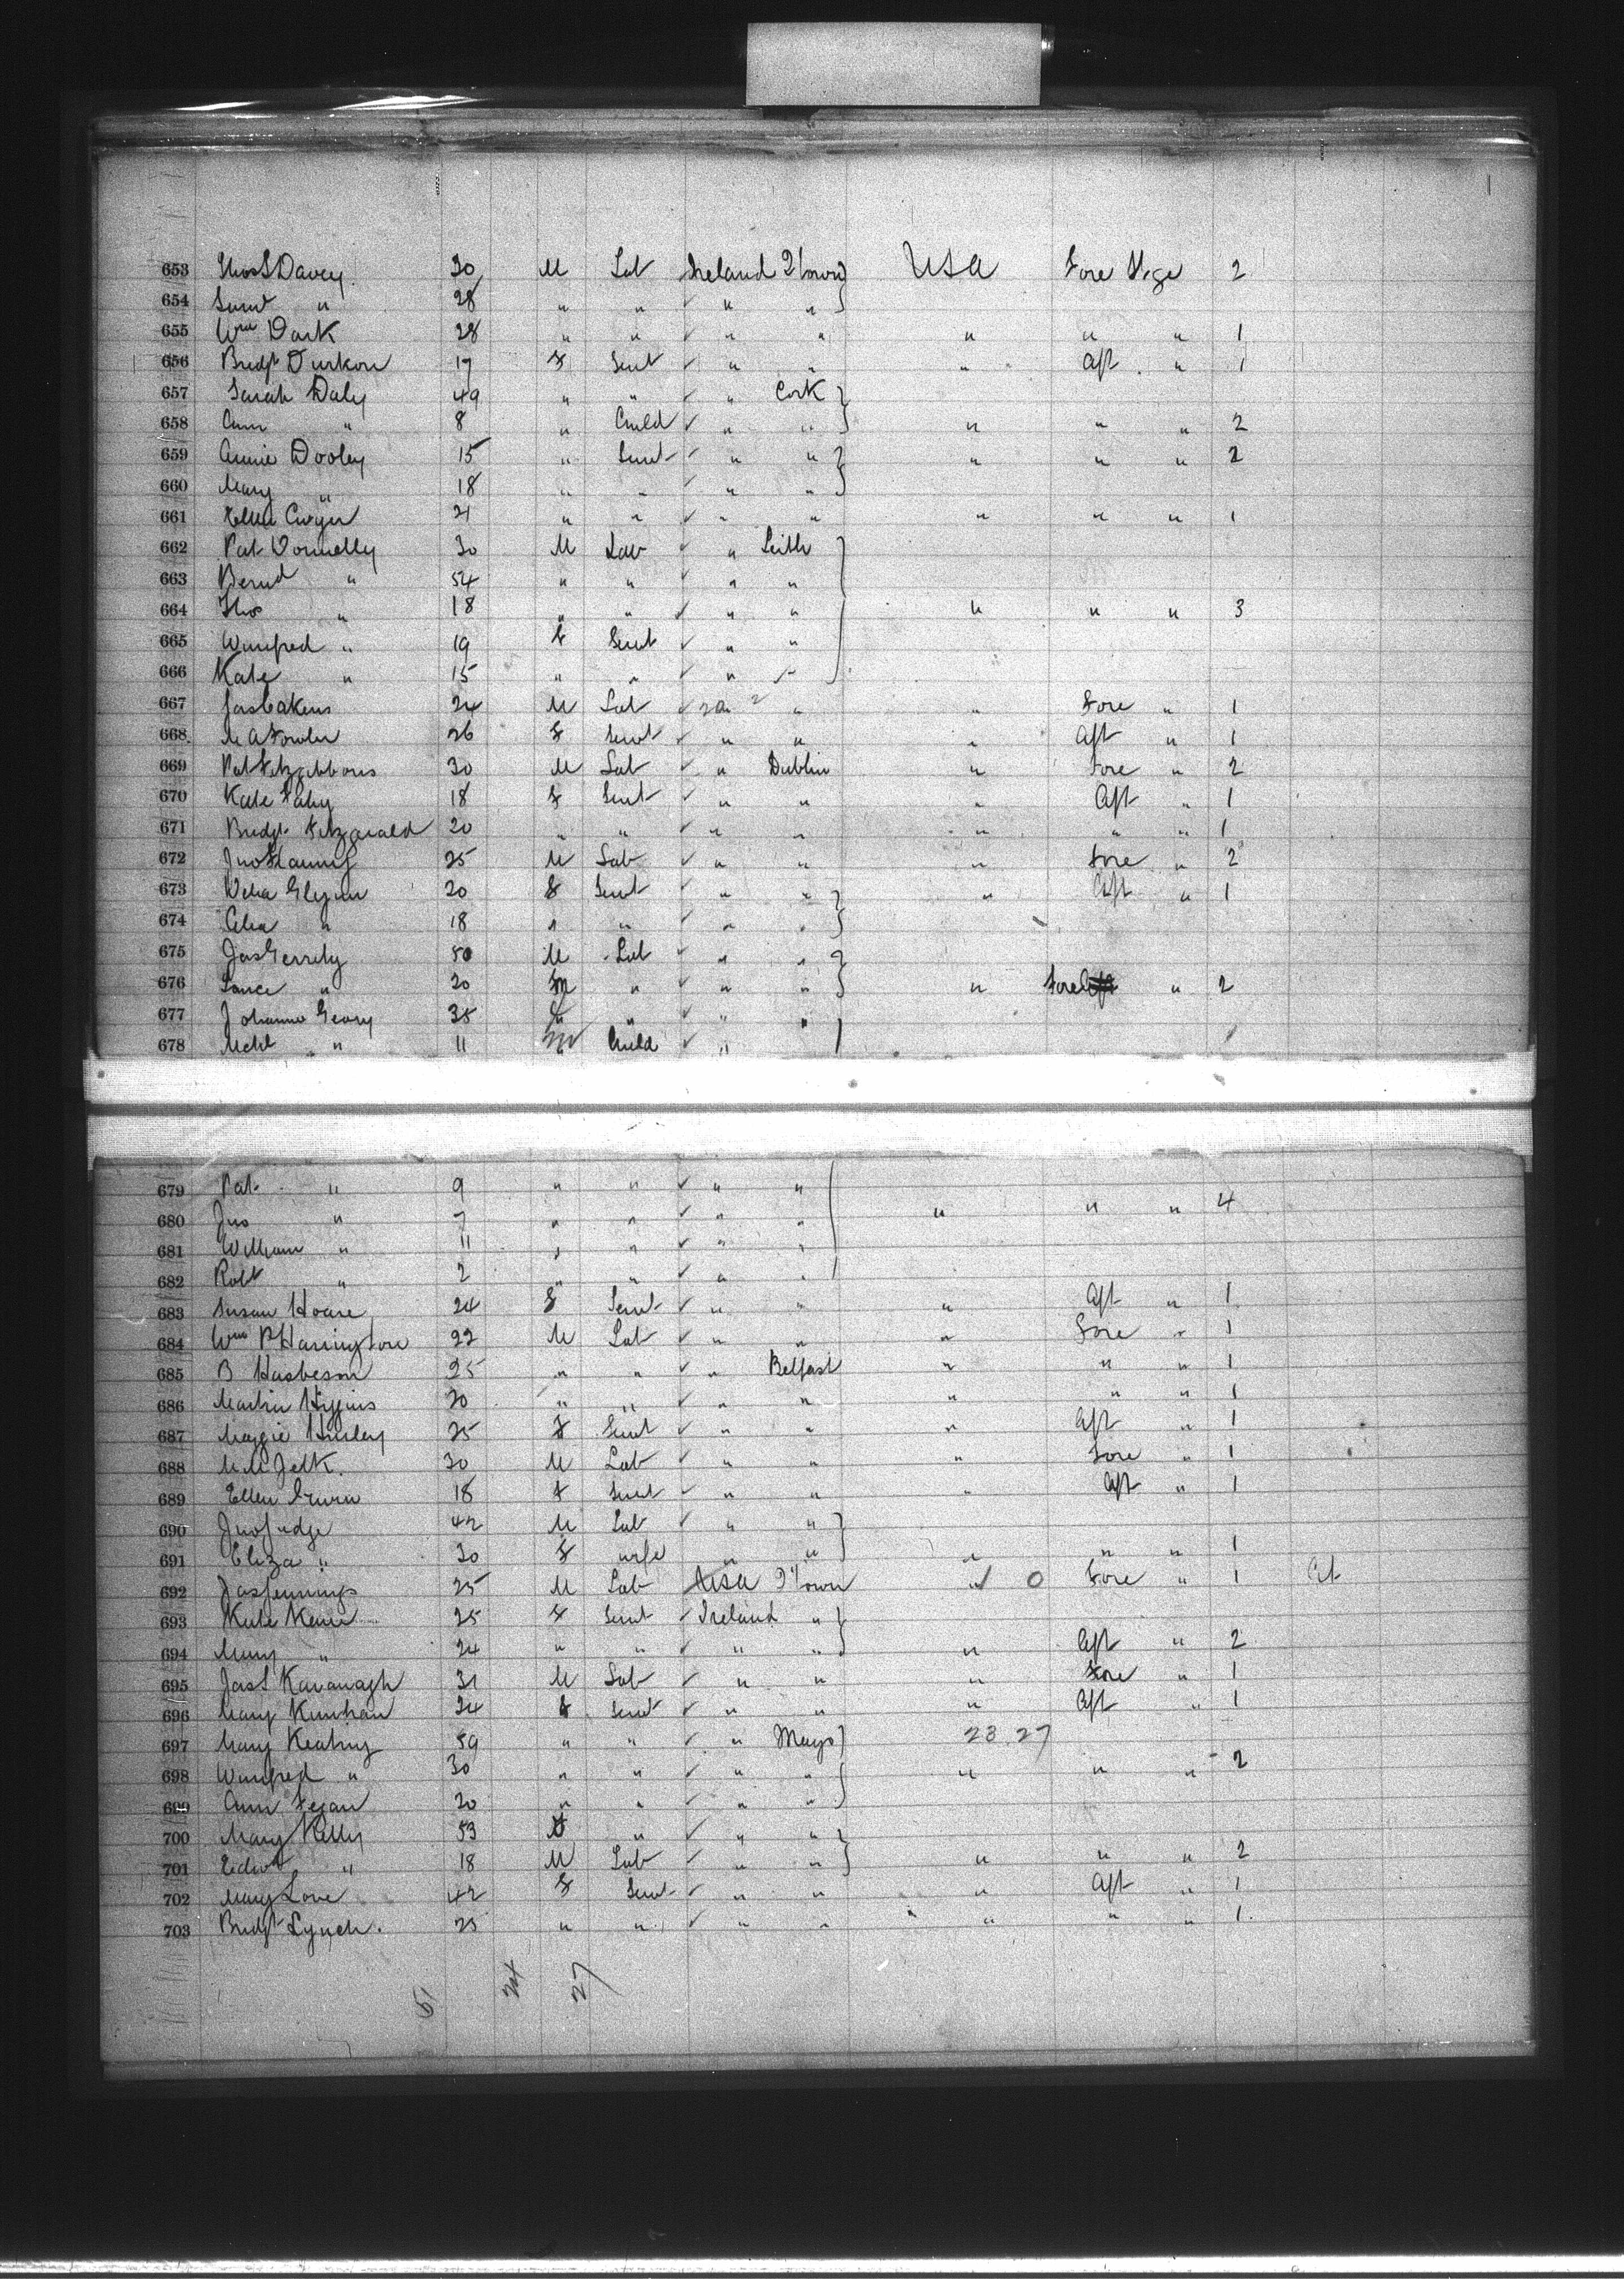 653 Thos S Davey 30 M Lab Ireland Q'town } USA Fore Stge 2
654 " 28 " " ✓ " " }
655 Wm Dark 28 " " ✓ " " " " " 1
656 Bridgt Durkon 17 F Servt ✓ " " " Aft " 1
657 Sarah Daly 49 " " ✓ " Cork }
658 Ann " 8 " Child ✓ " " } " " " 2
659 Annie Dooley 15 " Servt ✓ " " } " " " 2
660 Mary " 18 " " ✓ " " }
661 Ellen 21 " " ✓ " " " " " 1
662 Pat Donnelly 30 M Lab ✓ " Leith }
663 Bernd " 54 " " ✓ " "
664 Thos " 18 " " ✓ " " " " " 3
665 Winifred " 19 F Servt ✓ " "
666 Kate " 15 " " ✓ " "
667 Jas Eakens 24 M Lab ✓ " " Fore " 1
668 M A Fowler 26 F Servt ✓ " " " Aft " 1
669 Pat Fitzgibbons 30 M Lab ✓ " Dublin " Fore " 2
670 Kate Fahy 18 F Servt ✓ " " " Aft " 1
671 Bridgt Fitzgerald 20 " " ✓ " " " " " 1
672 Jno Flannig 25 M Lab ✓ " " " Fore " 2
673 Delia Glynn 20 F Servt ✓ " " } " Aft " 1
674 Celia " 18 " " ✓ " " }
675 Jas Gerrity 50 M Lab ✓ " " }
676 " 20 M " ✓ " " } " Fore " 2
677 Johanna Geary 35 " ✓ " "
678 Michl " 11 M Child ✓ "
679 Pat " 9 " " ✓ " "
680 Jno " 7 " " ✓ " " " " " 4
681 William " 11 " " ✓ " "
682 Robt " 2 " " ✓ " "
683 Susan Hoare 24 F Servt ✓ " " " Aft " 1
684 Wm P Harrington 22 M Lab ✓ " " " Fore " 1
685 B Hasbeson 25 " " ✓ " Belfast " " " 1
686 Martin Higgins 20 " " ✓ " " " " " 1
687 Maggie Hurley 25 F Servt ✓ " " " Aft " 1
688 30 M Lab ✓ " " " Fore " 1
689 Ellen 18 F Servt ✓ " " " Aft " 1
690 Jno Judge 42 M Lab ✓ " " }
691 Eliza " 30 F wife " " } " " " 1
692 Jas Jennings 25 M Lab USA Q'town " 0 Fore " 1 Cit
693 Kate Kane 25 F Servt ✓ Ireland " }
694 Mary " 24 " " ✓ " " } " Aft " 2
695 Jas S Kavanagh 31 M Lab ✓ " " " Fore " 1
696 Mary Kinnhan 24 F Servt ✓ " " " Aft " 1
697 Mary Keating 59 " " ✓ " Mayo } 23.27
698 Winifred " 30 " " ✓ " " " " " 2
699 Ann Fegan 20 " " ✓ " " }
700 Mary Kelly 53 F " ✓ " " }
701 Edwd " 18 M Lab ✓ " " } " " " 2
702 Mary Love 42 F Servt ✓ " " " Aft " 1
703 Bridgt Lynch. 25 " " ✓ " " " " " 1
51 24 27